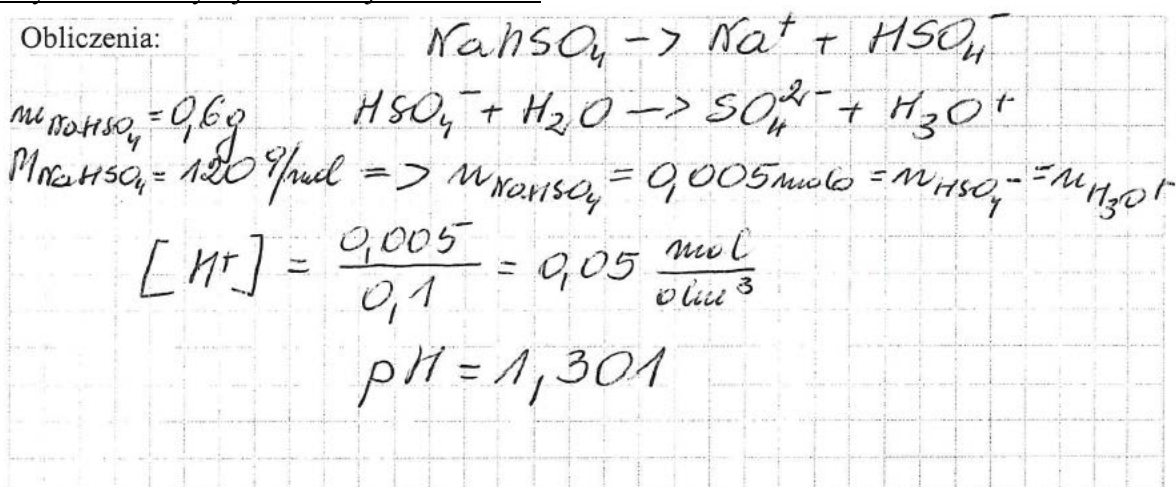 Obliczenia:
NaHSO₄ -> Na⁺ + HSO₄⁻
HSO₄⁻ + H₂O -> SO₄²⁻ + H₃O⁺
m NaHSO₄ = 0,6g
M NaHSO₄ = 120 g/mol => n NaHSO₄ = 0,005 mola = n HSO₄⁻ = n H₃O⁺
[H⁺] = 0,005 / 0,1 = 0,05 mol / dm³
pH = 1,301